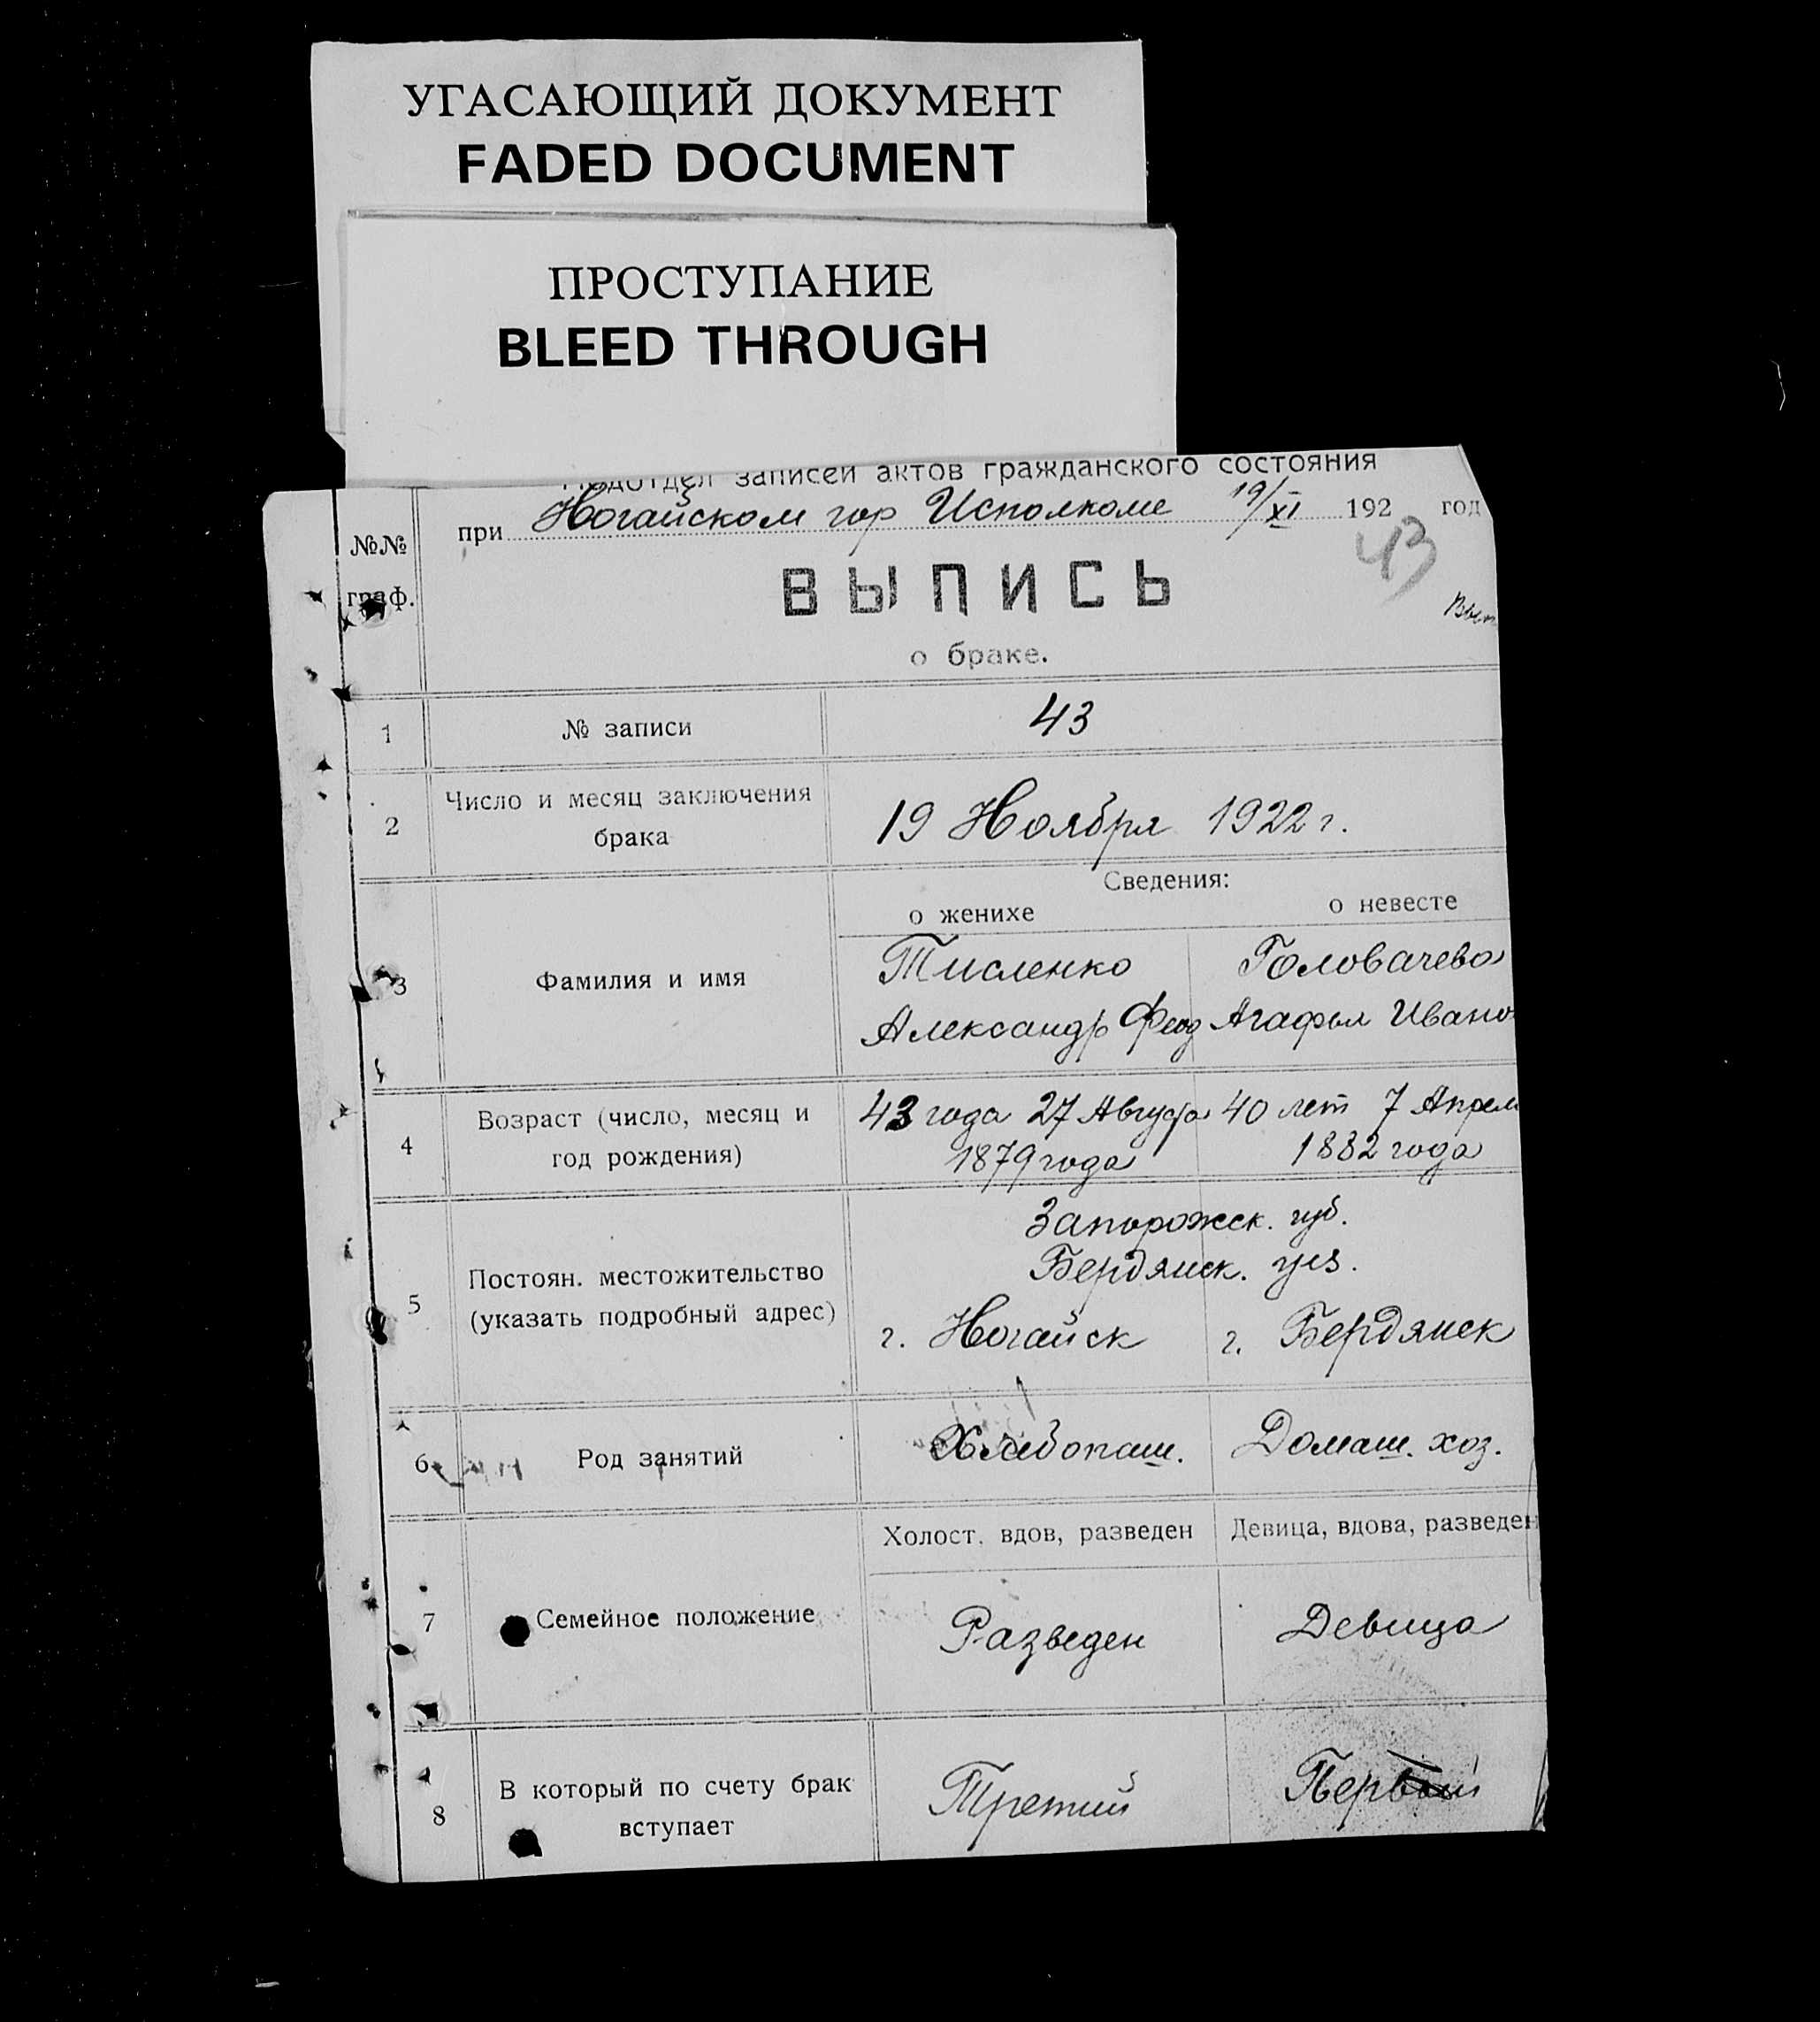 УГАСАЮЩИЙ ДОКУМЕНТ
FADED DOCUMENT
ПРОСТУПАНИЕ
BLEED THROUGH
Подотдел записей актов гражданского состояния
при Ногайском гор Исполкоме 19/XI 192 год
43
№№
граф.
ВЫПИСЬ
о браке.
1 № записи 43
2 Число и месяц заключения
брака
19 Ноября 1922 г.
Сведения:
о женихе о невесте
3 Фамилия и имя
Тисленко Головачева
Александр Феод Агафья Ивано
4 Возраст (число, месяц и
год рождения)
43 года 27 Августа 40 лет 7 Апреля
1879 года 1882 года
5 Постоян. местожительство
(указать подробный адрес)
Запорожск. губ.
Бердянск. уез.
г. Ногайск г. Бердянск
6 Род занятий Хлебопаш. Домаш. хоз.
Холост, вдов, разведен Девица, вдова, разведен
7 Семейное положение Разведен Девица
8 В который по счету брак
вступает
Третий Первый